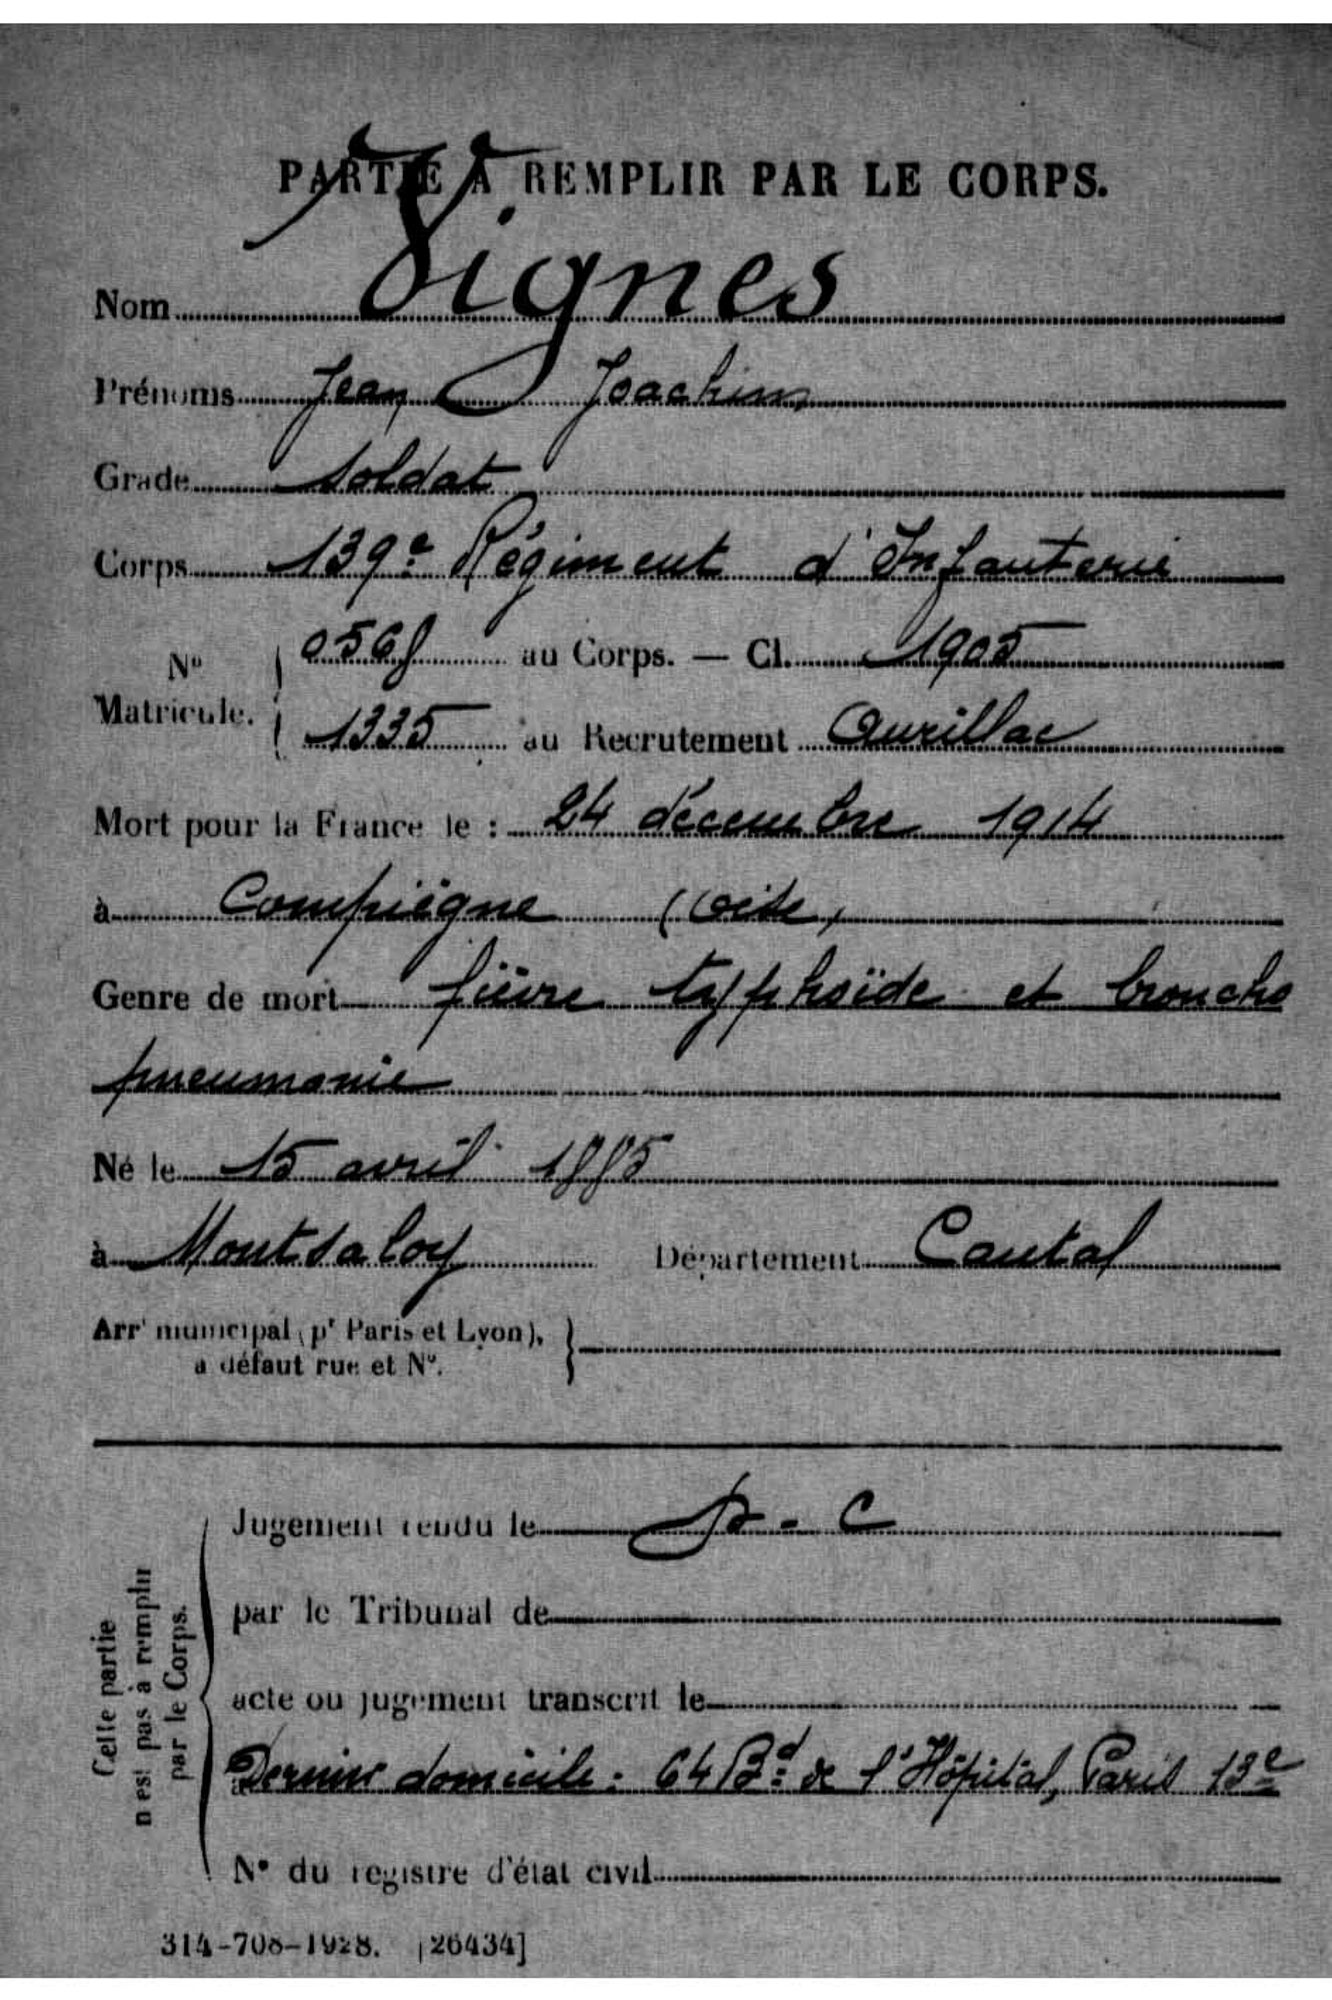 PARTIE À REMPLIR PAR LE CORPS.
Nom Vignes
Prénoms Jean Joachim
Grade soldat
Corps 139e Régiment d'Infanterie
No Matricule. { 0568 au Corps. — Cl. 1905
1335 au Recrutement Aurillac
Mort pour la France le : 24 décembre 1914
à Compiègne (Oise)
Genre de mort fièvre typhoïde et broncho
pneumonie
Né le 15 avril 1885
à Montsaloy Département Cantal
Arrt municipal (pr Paris et Lyon),
à défaut rue et No.
Cette partie
n'est pas à remplir
par le Corps.
Jugement rendu le - C
par le Tribunal de
acte ou jugement transcrit le
Dernier domicile : 64 Bd de l'Hôpital, Paris 13e
No du registre d'état civil
314-708-1928. [26434]